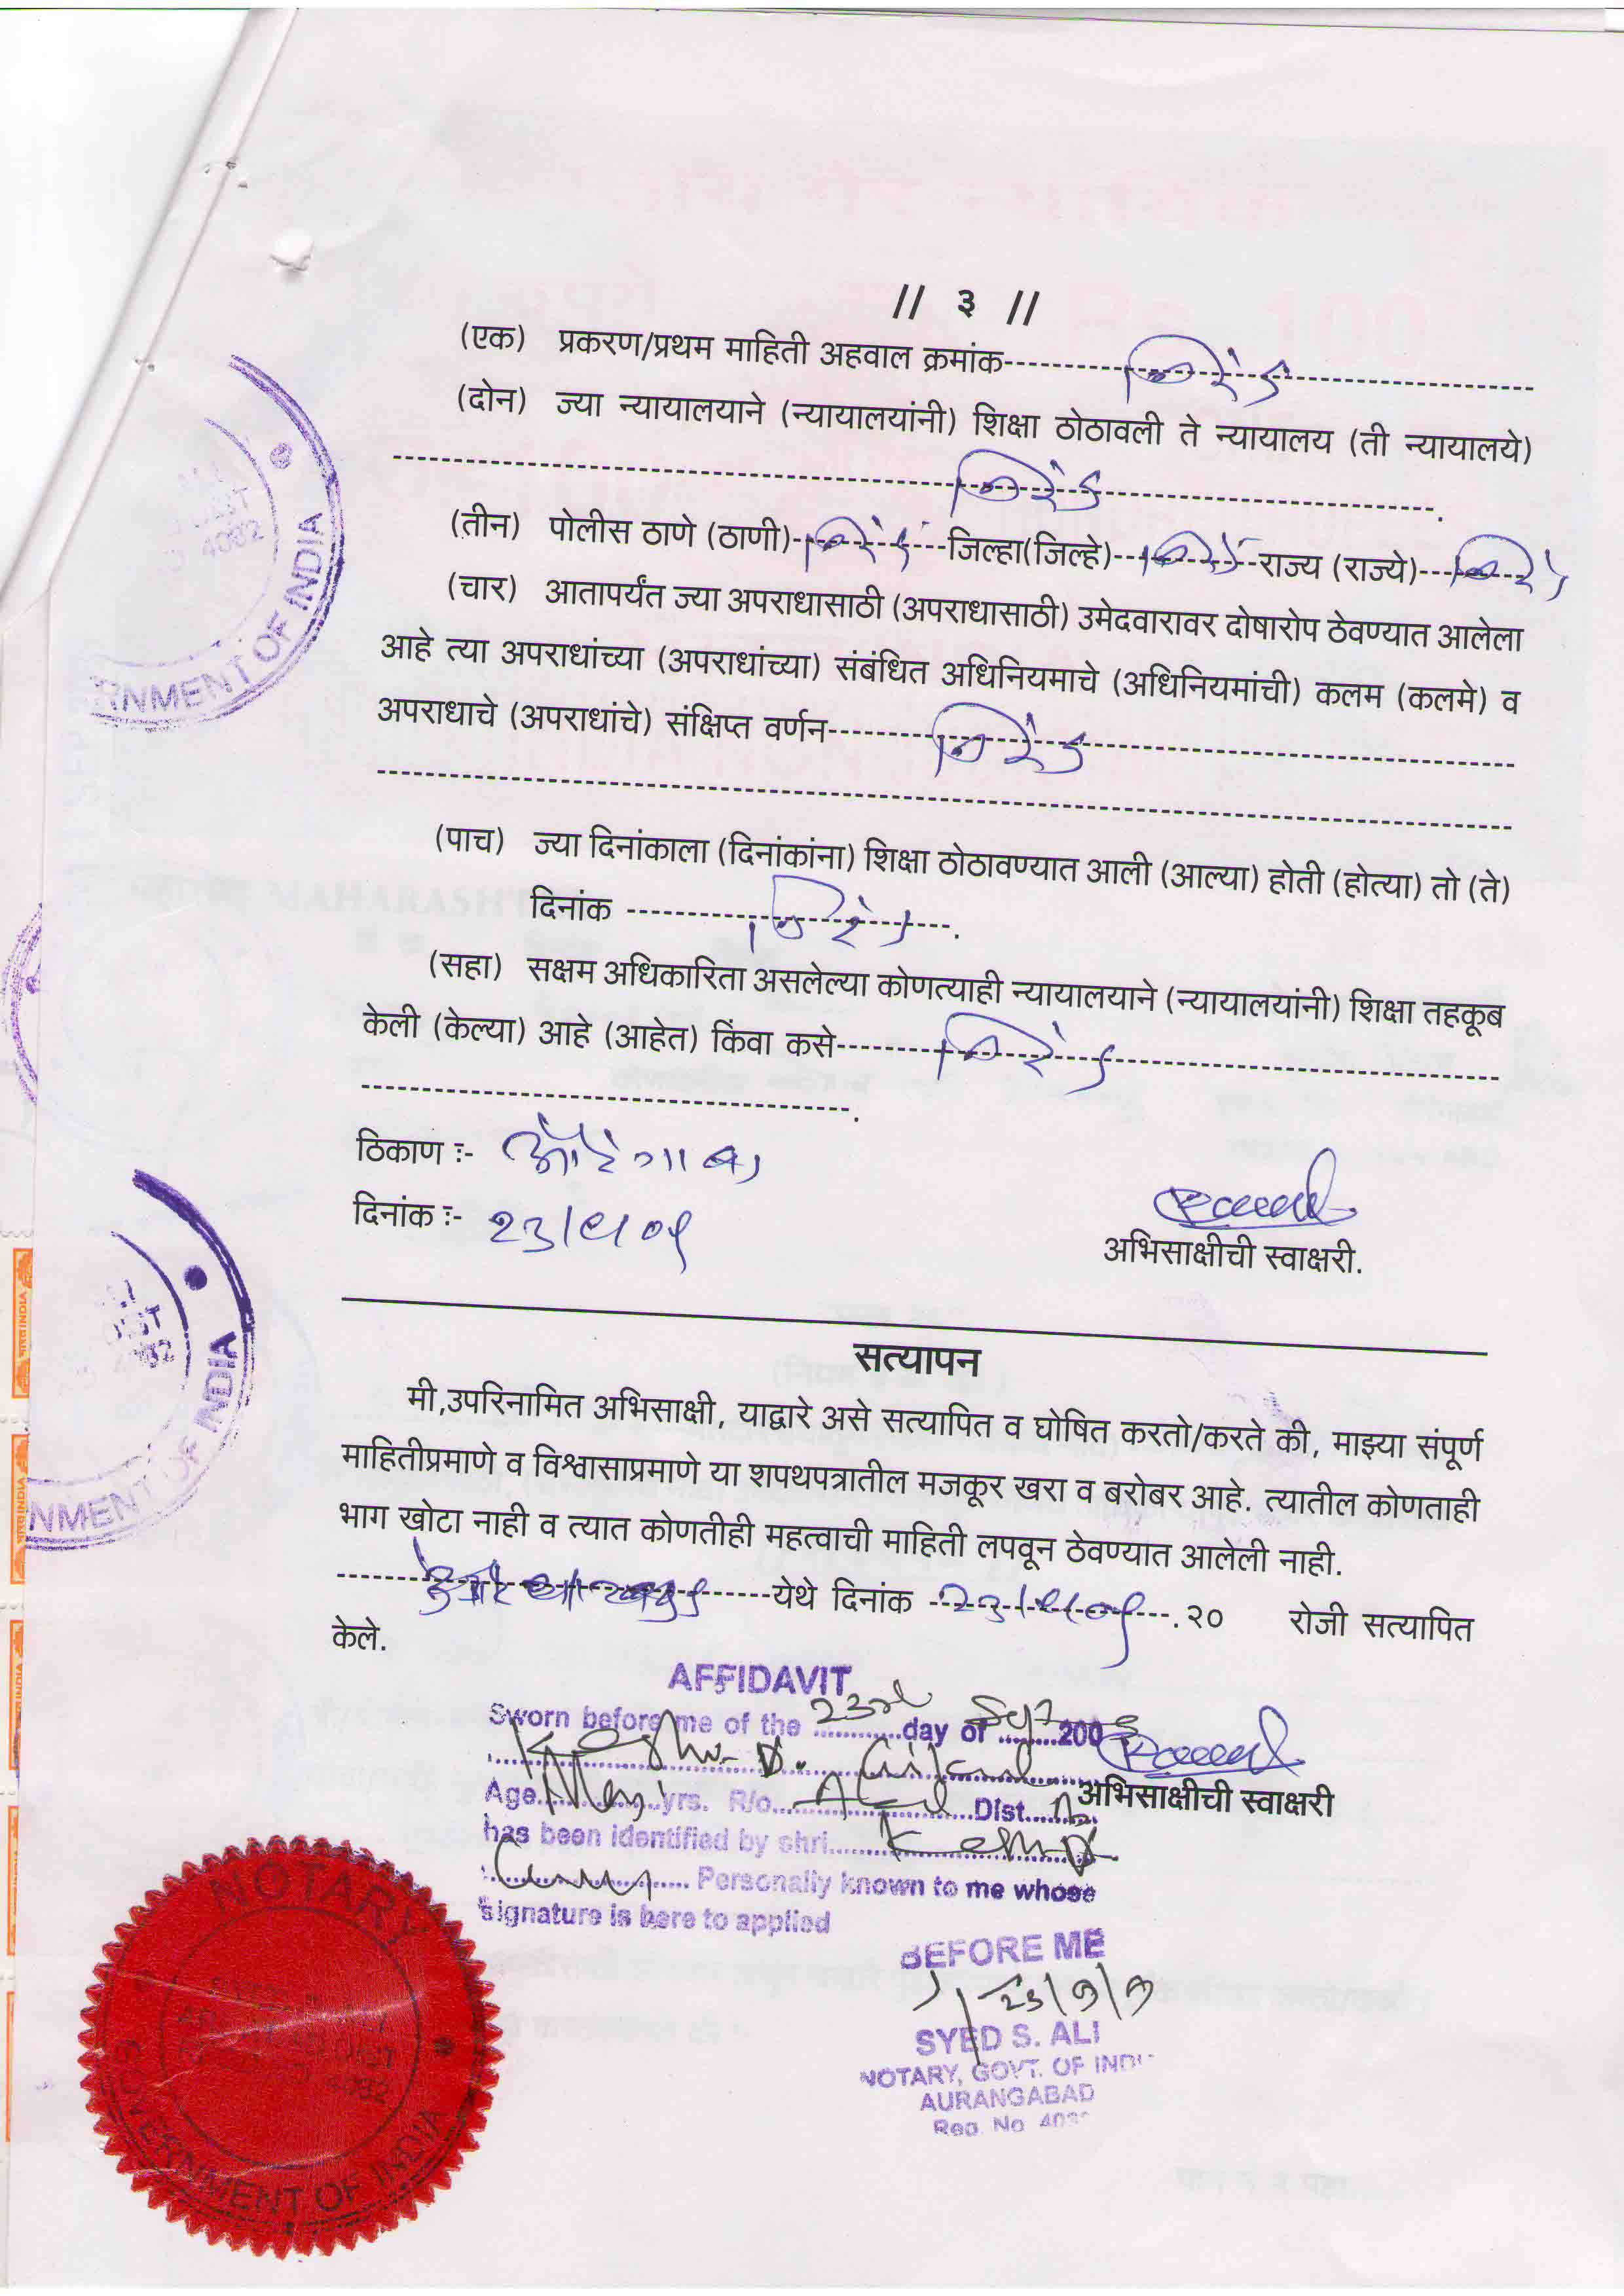 // ३ //
(एक) प्रकरण/प्रथम माहिती अहवाल क्रमांक---------- निरंक ----------
(दोन) ज्या न्यायालयाने (न्यायालयांनी) शिक्षा ठोठावली ते न्यायालय (ती न्यायालये)
---------- निरंक ----------.
(तीन) पोलीस ठाणे (ठाणी)-- निरंक ---जिल्हा(जिल्हे)--- निरंक ---राज्य (राज्ये)--- निरंक
(चार) आतापर्यंत ज्या अपराधासाठी (अपराधासाठी) उमेदवारावर दोषारोप ठेवण्यात आलेला
आहे त्या अपराधांच्या (अपराधांच्या) संबंधित अधिनियमाचे (अधिनियमांची) कलम (कलमे) व
अपराधाचे (अपराधांचे) संक्षिप्त वर्णन---------- निरंक ----------
(पाच) ज्या दिनांकाला (दिनांकांना) शिक्षा ठोठावण्यात आली (आल्या) होती (होत्या) तो (ते)
दिनांक ---------- निरंक ----------.
(सहा) सक्षम अधिकारिता असलेल्या कोणत्याही न्यायालयाने (न्यायालयांनी) शिक्षा तहकूब
केली (केल्या) आहे (आहेत) किंवा कसे---------- निरंक ----------
----------.
ठिकाण :- औरंगाबाद
दिनांक :- २३/९/०९
अभिसाक्षीची स्वाक्षरी.
सत्यापन
मी,उपरिनामित अभिसाक्षी, याद्वारे असे सत्यापित व घोषित करतो/करते की, माझ्या संपूर्ण
माहितीप्रमाणे व विश्वासाप्रमाणे या शपथपत्रातील मजकूर खरा व बरोबर आहे. त्यातील कोणताही
भाग खोटा नाही व त्यात कोणतीही महत्वाची माहिती लपवून ठेवण्यात आलेली नाही.
---------- औरंगाबाद ----------येथे दिनांक -- २३/९/०९ ---.२० रोजी सत्यापित
केले.
AFFIDAVIT
Sworn before me of the 23rd day of Sept 200
Age............yrs. R/o............Dist......
अभिसाक्षीची स्वाक्षरी
has been identified by shri............
............ Personally known to me whose
signature is here to applied
BEFORE ME
23/9/9
SYED S. ALI
NOTARY, GOVT. OF INDI
AURANGABAD
Reg. No 408
NOTARY
GOVERNMENT OF INDIA
RNMENT OF INDIA
4082
NMENT OF INDIA